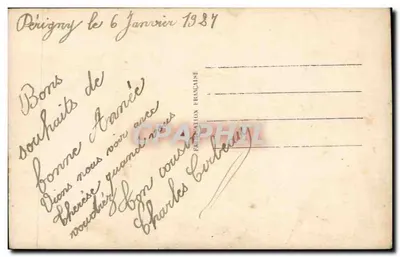 Périgny le 6 Janvier 1927
Bons
souhaits de
bonne Année
Viens nous voir avec
Thérèse quand vous
voudrez
Ton cousin
Charles
FABRICATION FRANÇAISE